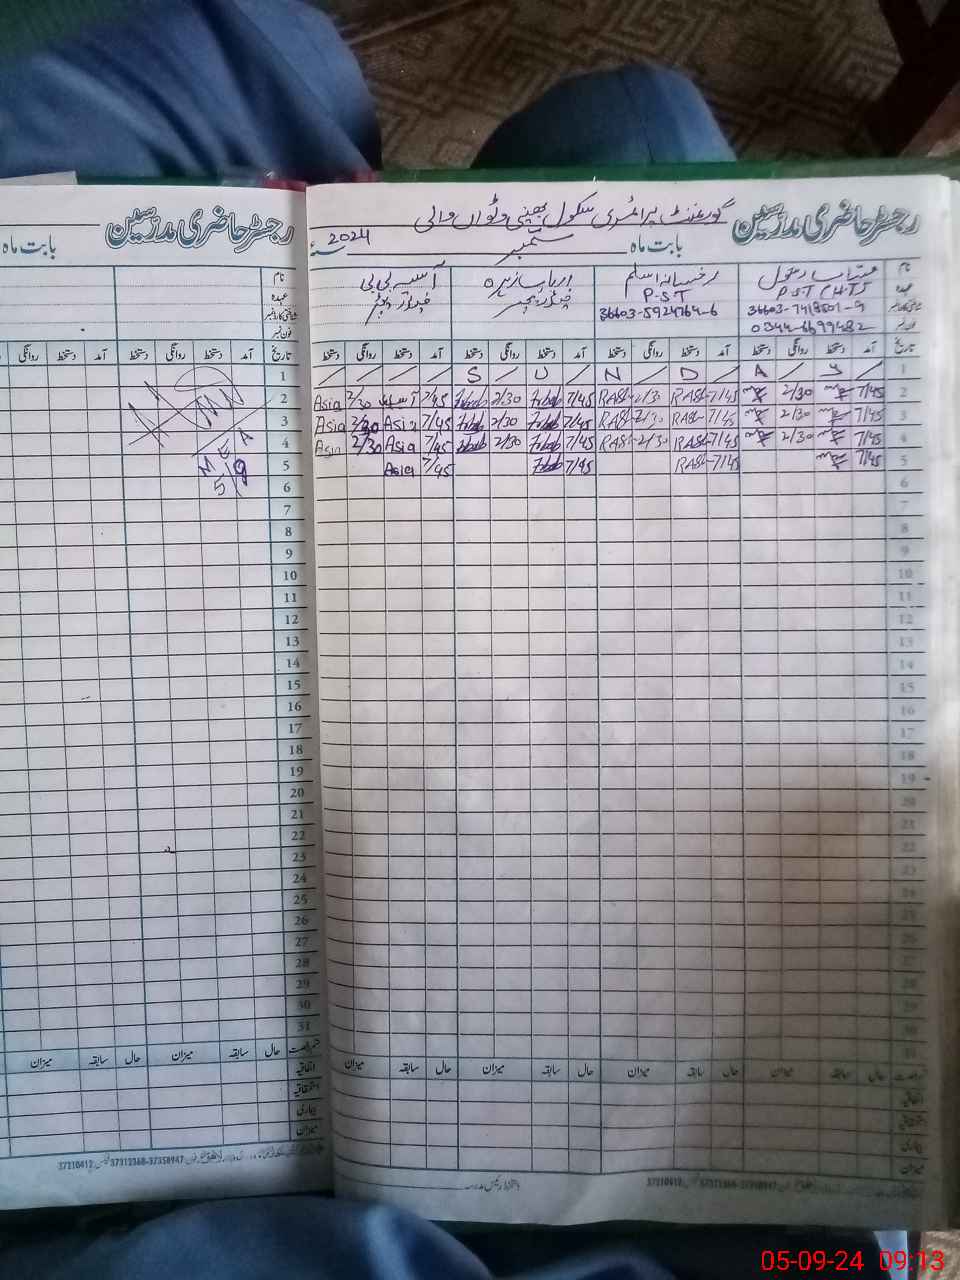 رجسٹر حاضری مدرسین گورنمنٹ پرائمری سکول بھینی وٹواں والی
بابت ماہ ستمبر 2024 سنہ
نام رسول رخسانہ اسلم آسیہ بی بی
عہدہ P.S.T (H.T) P.S.T
شناختی کارڈ نمبر 36603-5924764-6
فون نمبر 0344-6699482
تاریخ آمد دستخط روانگی دستخط آمد دستخط روانگی دستخط آمد دستخط روانگی دستخط آمد دستخط روانگی دستخط
1 S U N D A Y
2 7/45 2/30 7/45 RASL 2/30 RASL 7/45 2/30 7/45 آسیہ 2/30 Asia
3 7/45 2/30 7/45 RASL 2/30 RASL 7/45 2/30 7/45 Asia 2/30 Asia
4 7/45 2/30 7/45 RASL 2/30 RASL 7/45 2/30 7/45 Asia 2/30 Asia
5 7/45 7/45 RASL 7/45 7/45 Asia
6
7
8
9
10
11
12
13
14
15
16
17
18
19
20
21
22
23
24
25
26
27
28
29
30
31
رخصت حال سابقہ میزان حال سابقہ میزان حال سابقہ میزان حال سابقہ میزان
اتفاقیہ
استحقاقیہ
بیماری
میزان
دستخط رئیس مدرسہ
رجسٹر حاضری مدرسین
بابت ماہ
نام
عہدہ
شناختی کارڈ نمبر
فون نمبر
تاریخ آمد دستخط روانگی دستخط آمد دستخط روانگی
1
2
3
4
5
6
7
8
9
10
11
12
13
14
15
16
17
18
19
20
21
22
23
24
25
26
27
28
29
30
31
MEA
5/9
رخصت حال سابقہ میزان حال سابقہ میزان
اتفاقیہ
استحقاقیہ
بیماری
میزان
37358947-37312368 37310412
05-09-24 09:13